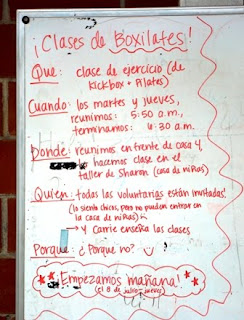 ¡Clases de Boxilates!
Que: clase de ejercicio (de
kickbox + Pilates)
Cuando: los martes y jueves,
reunimos: 5:50 a.m.,
terminamos: 6:30 a.m.
Donde: reunimos en frente de casa 4,
hacemos clase en el
taller de Sharon (casa de niñas)
Quien: todas las voluntarias están invitadas!
(lo siento chicos, pero no pueden entrar en
la casa de niñas)
→ y Carrie enseña las clases
Porque: ¿Porque no?
¡Empezamos mañana!
(el 8 de julio - jueves)